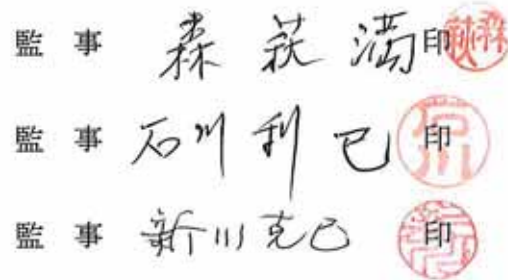 監 事 森 荻 満 印
監 事 石川 利 巳 印
監 事 新川克己 印